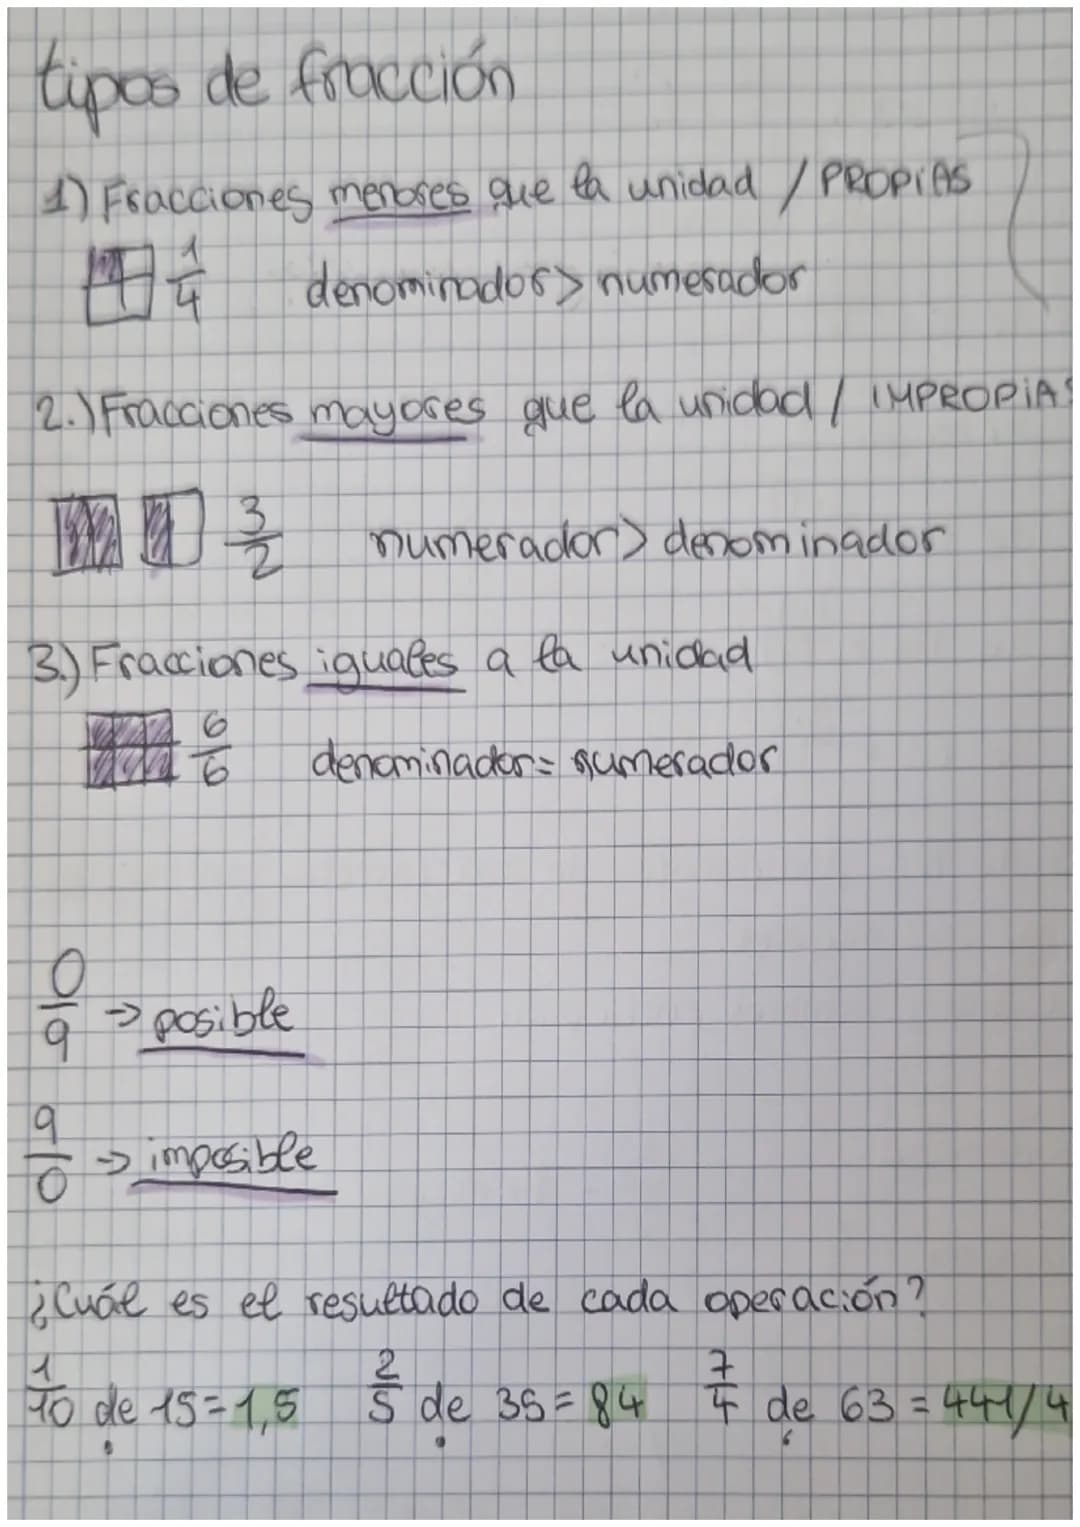 tipos de fracción
1) Fracciones menores que la unidad / PROPIAS
1/4 denominador > numerador
2.) Fracciones mayores que la unidad / IMPROPIAS
3/2 numerador > denominador
3.) Fracciones iguales a la unidad
6/6 denominador = numerador
0/9 → posible
9/0 → imposible
¿Cuál es el resultado de cada operación?
1/10 de 15 = 1,5 2/5 de 35 = 84 7/4 de 63 = 441/4